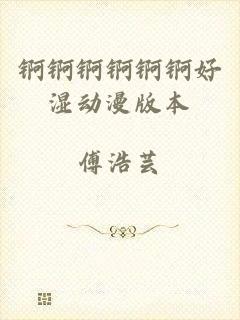 锕锕锕锕锕锕好
湿动漫版本
傅浩芸